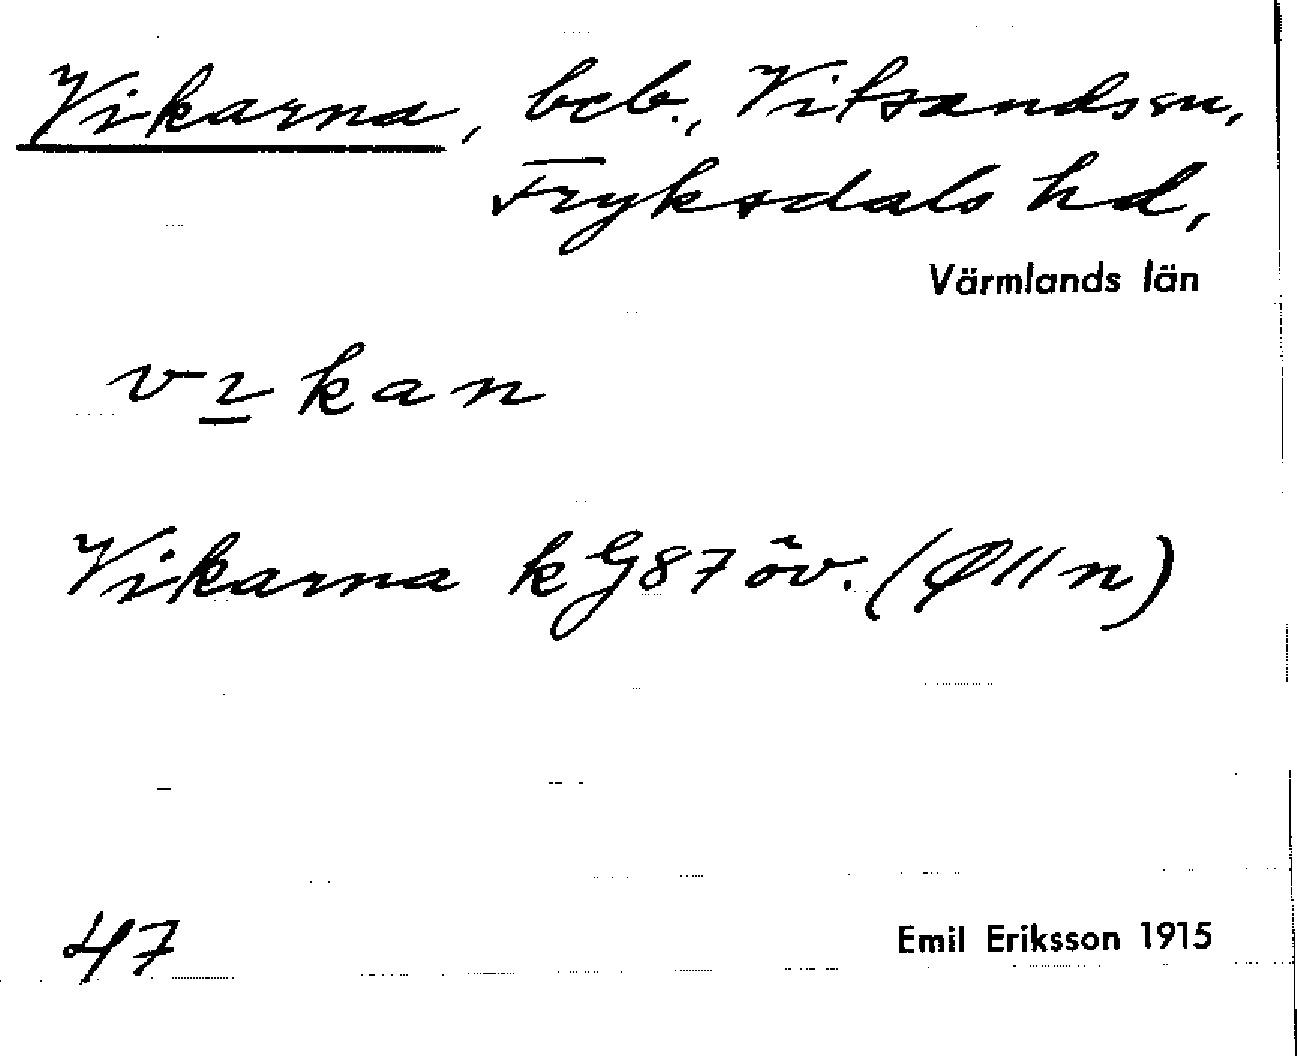 Vikarna, beb., Vitsands sn,
Fryksdals hd,
Värmlands län
vıkan
Vikarna kG87 öv. (Ø11n)
47
Emil Eriksson 1915